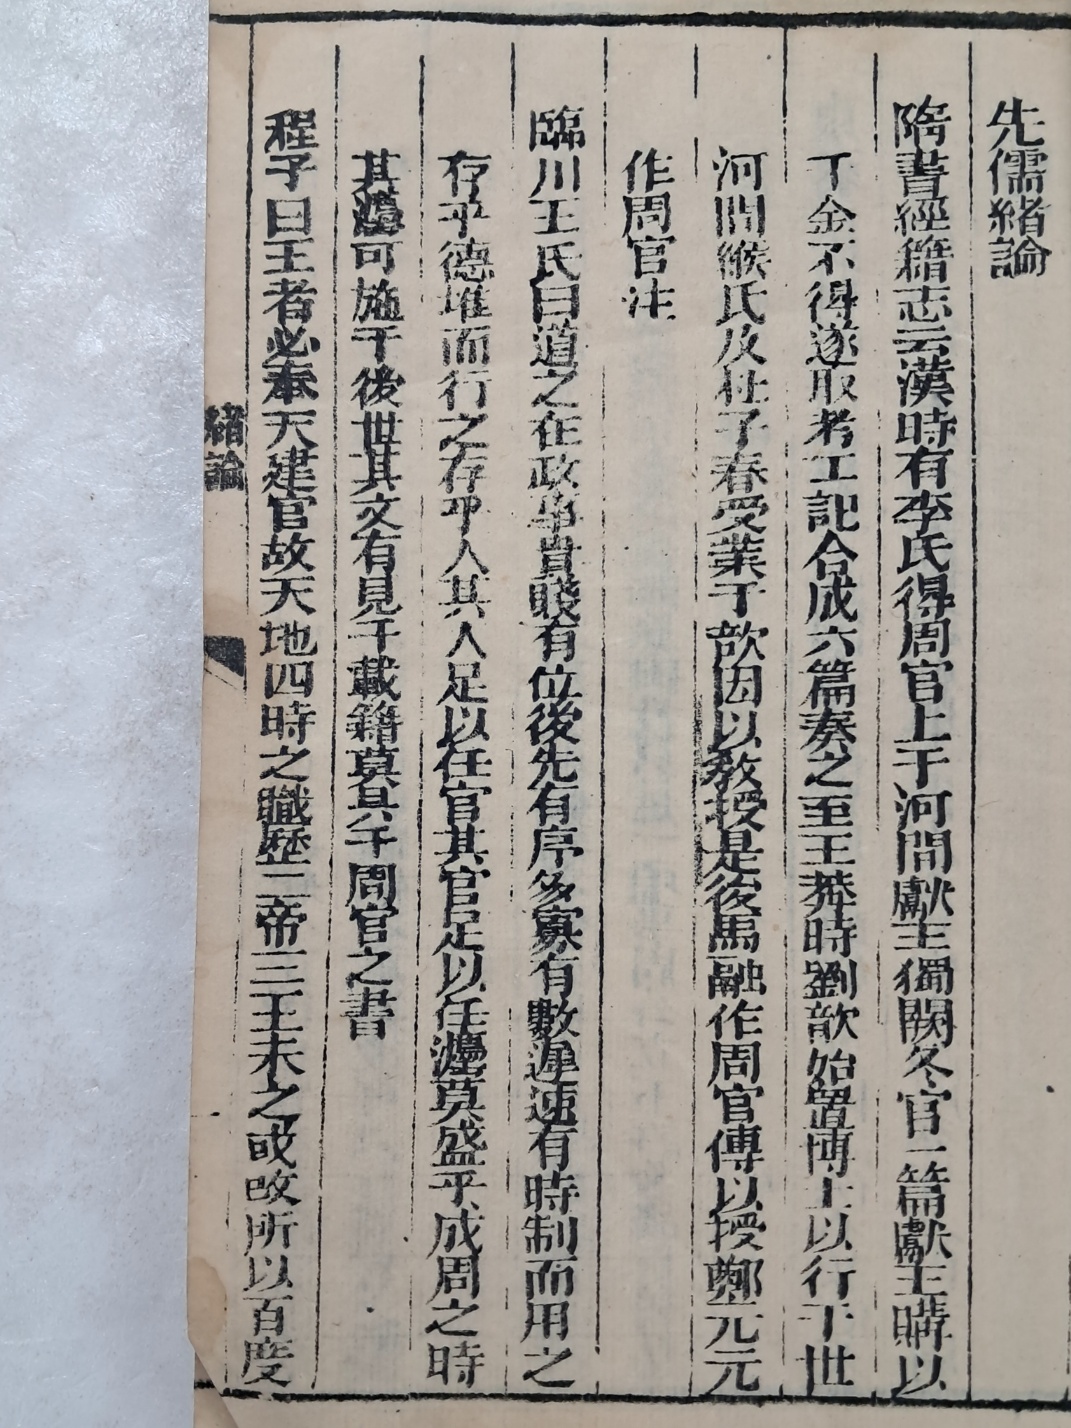 先儒緒論
隋書經籍志云漢時有李氏得周官上于河間獻王獨闕冬官一篇獻王購以
千金不得遂取考工記合成六篇奏之至王莽時劉歆始置博士以行于世
河間緱氏及杜子春受業于歆因以教授是後馬融作周官傳以授鄭元元
作周官注
臨川王氏曰道之在政事貴賤有位後先有序多寡有數遲速有時制而用之
存乎灋推而行之存乎人其人足以任官其官足以任灋莫盛乎成周之時
其灋可施于後世其文有見于載籍莫具于周官之書
程子曰王者必奉天建官故天地四時之職歷二帝三王未之或改所以百度
緒論